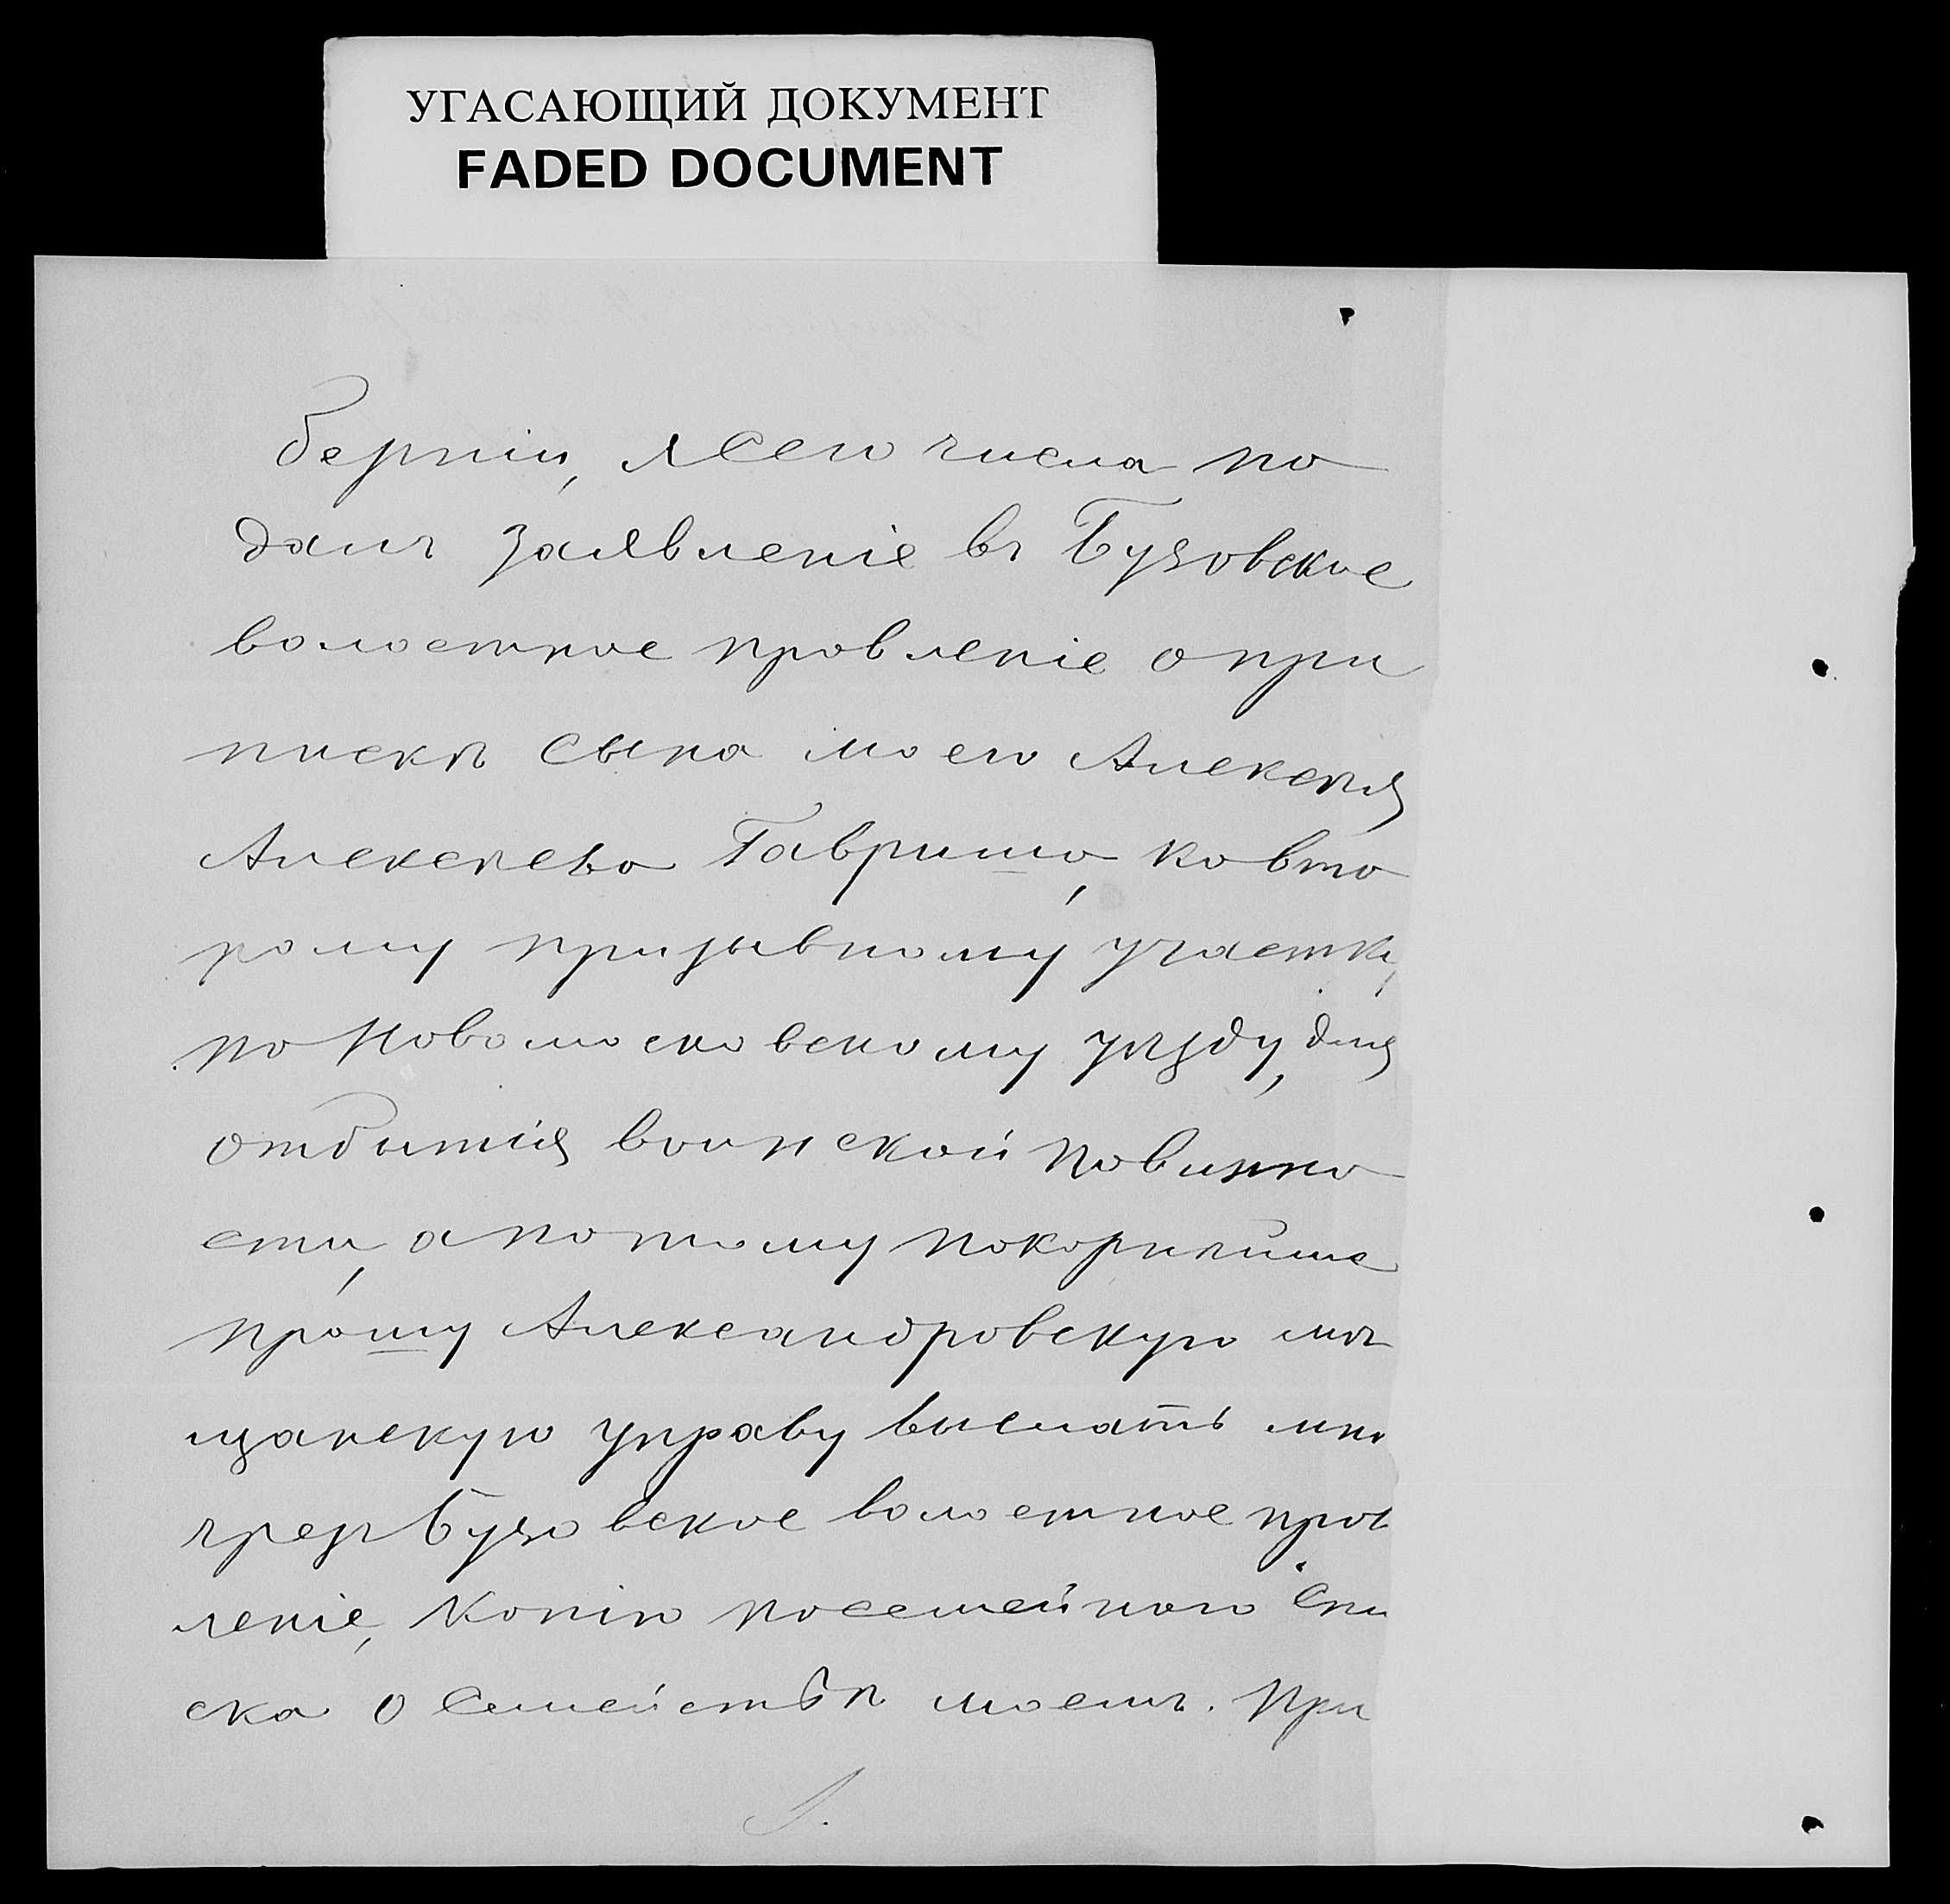 УГАСАЮЩИЙ ДОКУМЕНТ
FADED DOCUMENT
берніи, я сего числа по
далъ заявленіе въ Бузовское
волостное провленіе о при
пискѣ сына моего Алексѣя
Алексѣева Гавриша, ко вто
рому призывному участку,
по Новомосковскому уѣзду, для
отбытія воинской повинно
сти, а потому покорнѣйше
прошу Александровскую мѣ
щанскую управу выслать мнѣ
чрезъ Бузовское волостное прав
леніе, копію посемейного спи
ска о семействѣ моемъ. При